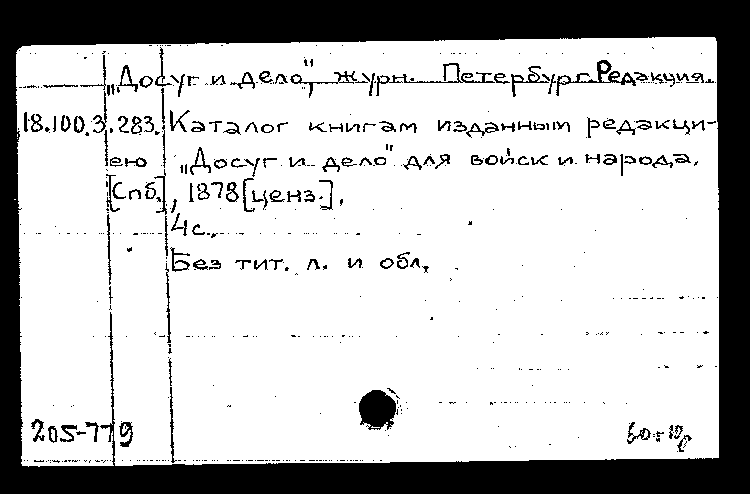 „Досуг и дело", журн. Петербург. Редакция.
18.100.3.283. Каталог книгам изданным редакци-
ею „Досуг и дело" для войск и народа.
[Спб.], 1878 [ценз.].
4 с.
Без тит. л. и обл.
205-779